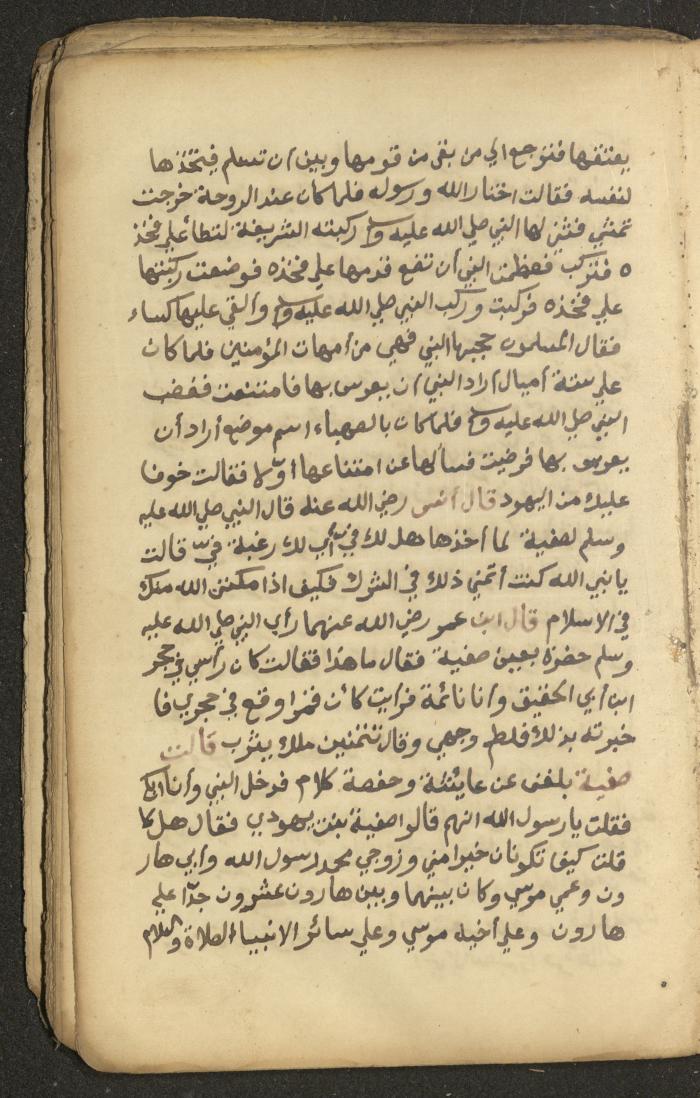 يعتقها فترجع الي من بقى من قومها وبين ان تسلم فيتخذها
لنفسه فقالت اختار الله ورسوله فلما كان عند الروحة خرجت
تمشي فثنى لها النبي صلي الله عليه وسلم ركبته الشريفة لتطأ علي فخذ
ه فتركب فعظمت النبي أن تضع قدمها علي فخذه فوضعت ركبتها
علي فخذه فركبت وركب النبي صلي الله عليه وسلم وألقي عليها كساء
فقال المسلمون حجبها النبي فهي من أمهات المؤمنين فلما كان
علي ستة أميال أراد النبي أن يعرس بها فامتنعت فغضب
النبي صلي الله عليه وسلم فلما كان بالصهباء اسم موضع أراد أن
يعرس بها فرضيت فسألها عن امتناعها أولا فقالت خوفا
عليك من اليهود قال أنس رضي الله عنه قال النبي صلي الله عليه
وسلم لصفية لما أخذها هل لك في أي لك رغبة في قالت
يا نبي الله كنت أتمني ذلك في الشرك فكيف اذا مكنني الله منك
في الاسلام قال ابن عمر رضي الله عنهما رأي النبي صلي الله عليه
وسلم خضرة بعين صفية فقال ما هذا فقالت كان رأسي في حجر
ابن أبي الحقيق وأنا نائمة فرأيت كأن قمرا وقع في حجري فا
خبرته بذلك فلطم وجهي وقال تتمنين ملك يثرب قالت
صفية بلغني عن عايشة وحفصة كلام فدخل النبي وأنا ابكي
فقلت يا رسول الله انهم قالوا صفية بنت يهودي فقال هلا
قلت كيف تكونان خيرا مني وزوجي محمد رسول الله وأبي هار
ون وعمي موسي وكان بينهما وبين هارون عشرون جدا علي
هارون وعلي أخيه موسي وعلي سائر الانبياء الصلاة والسلام